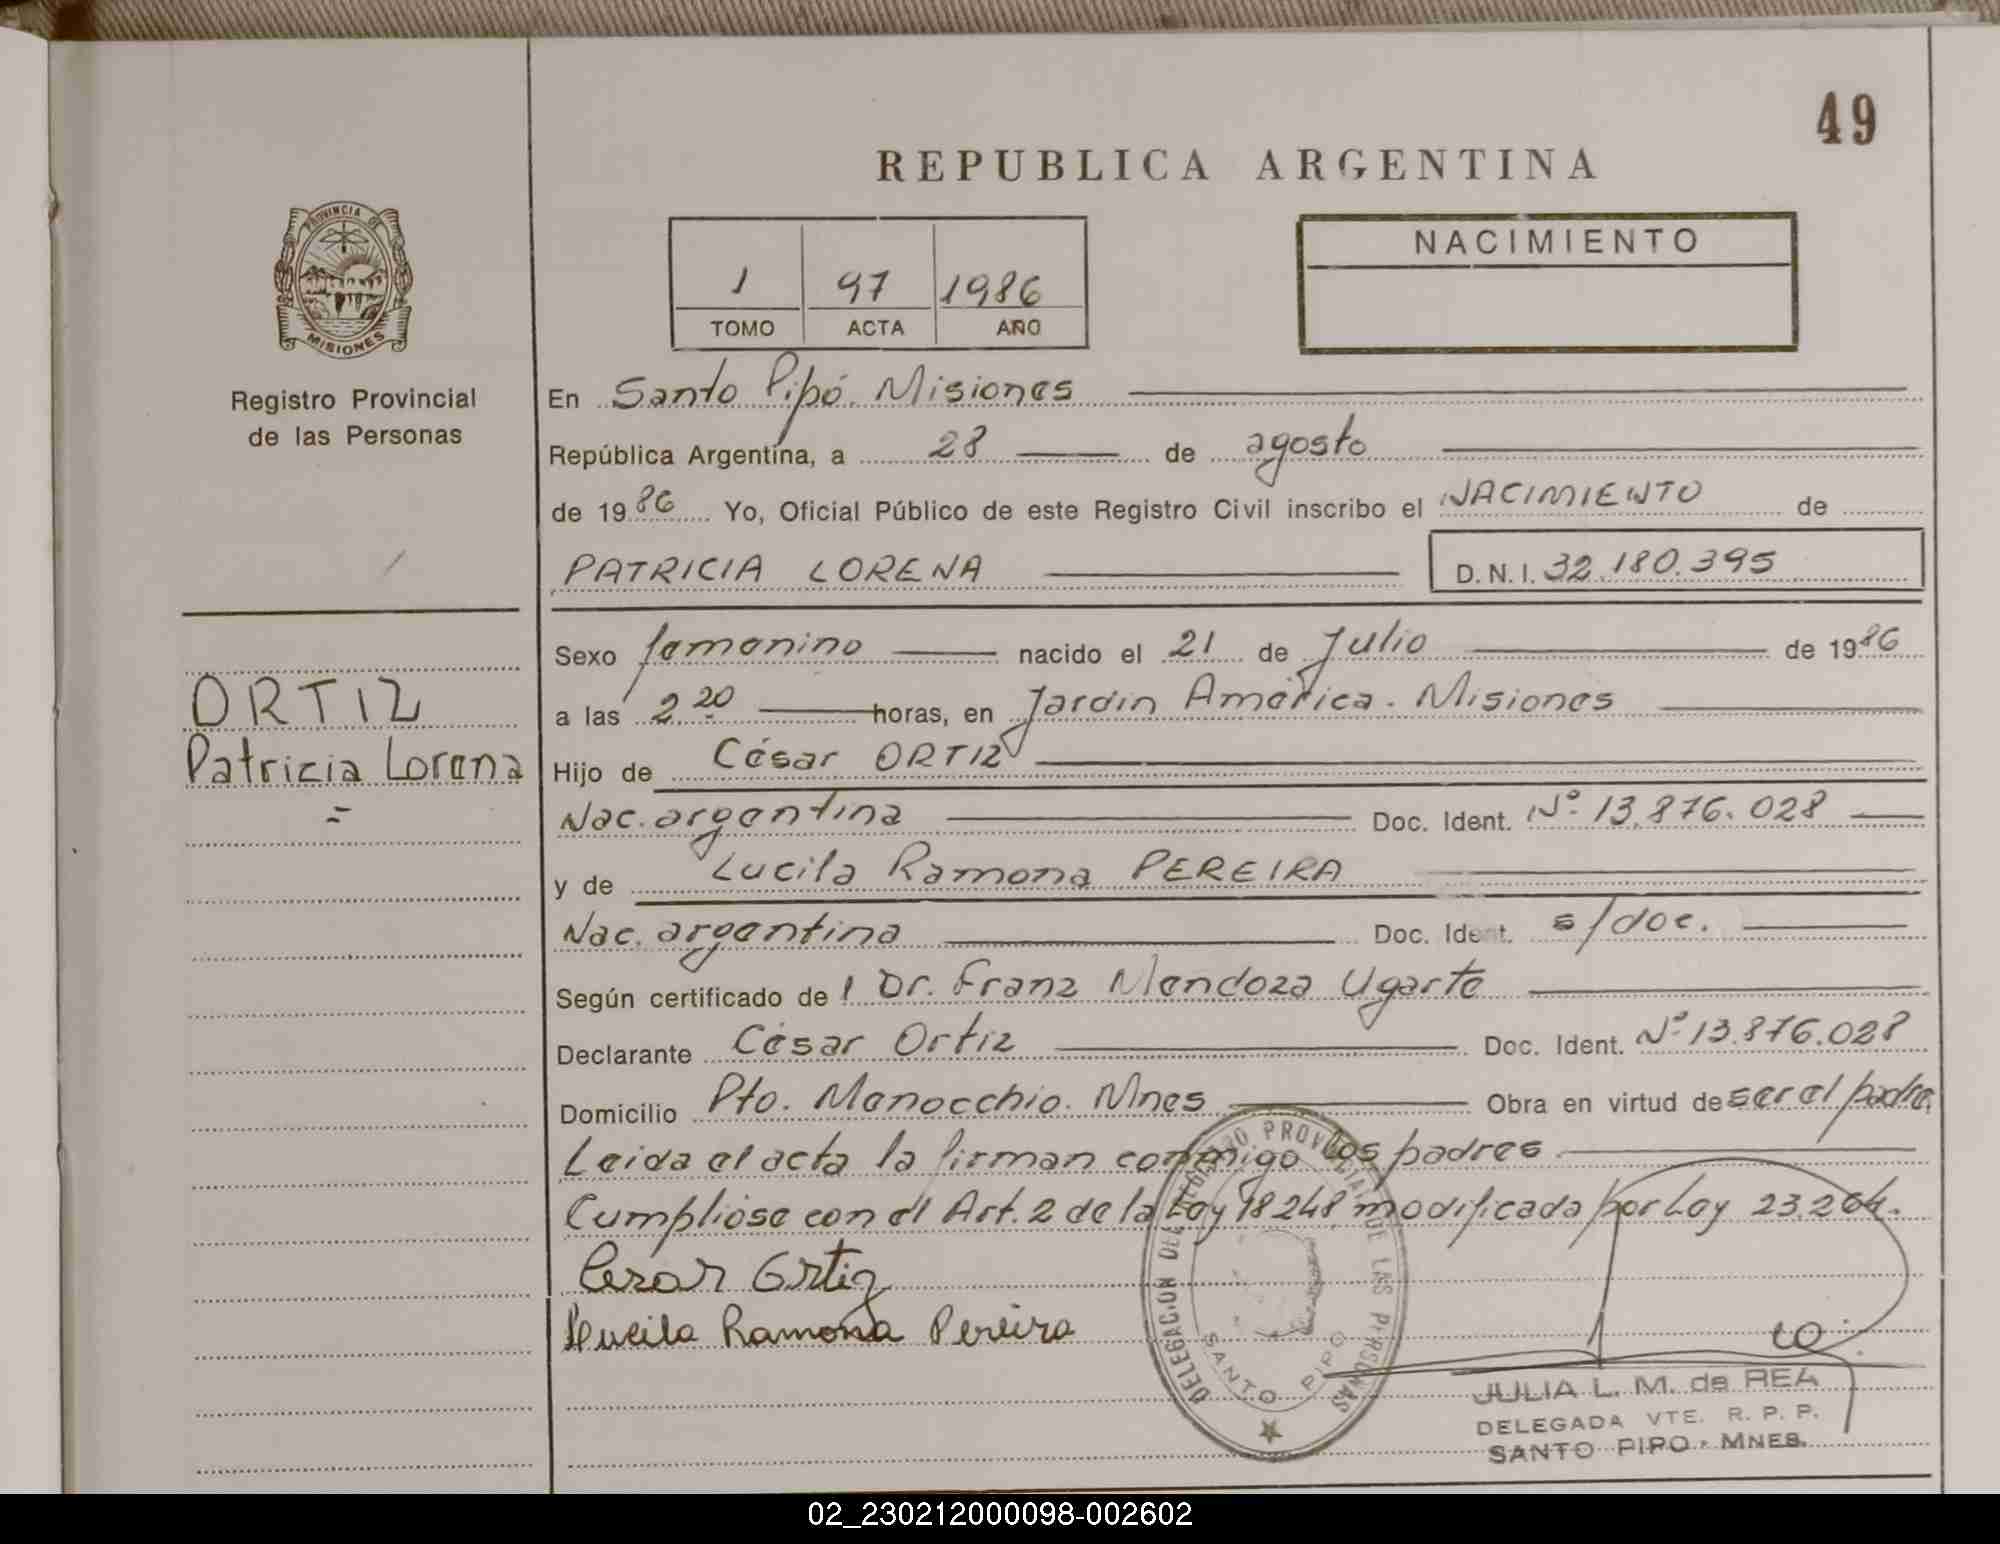 49
REPUBLICA ARGENTINA
PROVINCIA DE
MISIONES
Registro Provincial
de las Personas
1 97 1986
TOMO ACTA AÑO
NACIMIENTO
En Santo Pipó. Misiones
República Argentina, a 28 de agosto
de 1986 Yo, Oficial Público de este Registro Civil inscribo el NACIMIENTO de
PATRICIA LORENA D.N.I. 32.180.395
ORTIZ
Patricia Lorena
=
Sexo femenino nacido el 21 de Julio de 1986
a las 2 20 horas, en Jardín América. Misiones
Hijo de César ORTIZ
Nac. argentina Doc. Ident. Nº 13.876.028
y de Lucila Ramona PEREIRA
Nac. argentina Doc. Ident. s/doc.
Según certificado de l Dr. Franz Mendoza Ugarte
Declarante César Ortiz Doc. Ident. Nº 13.876.028
Domicilio Pto. Menocchio. Mnes Obra en virtud de ser el padre
Leida el acta la firman conmigo los padres
Cumplióse con el Art. 2 de la Ley 18248 modificada por Ley 23.264.
Cesar Ortiz
Lucila Ramona Pereira
DELEGACION DEL REGISTRO PROVINCIAL DE LAS PERSONAS
SANTO PIPO
JULIA L. M. de REA
DELEGADA VTE. R. P. P.
SANTO PIPO - MNES.
02_230212000098-002602